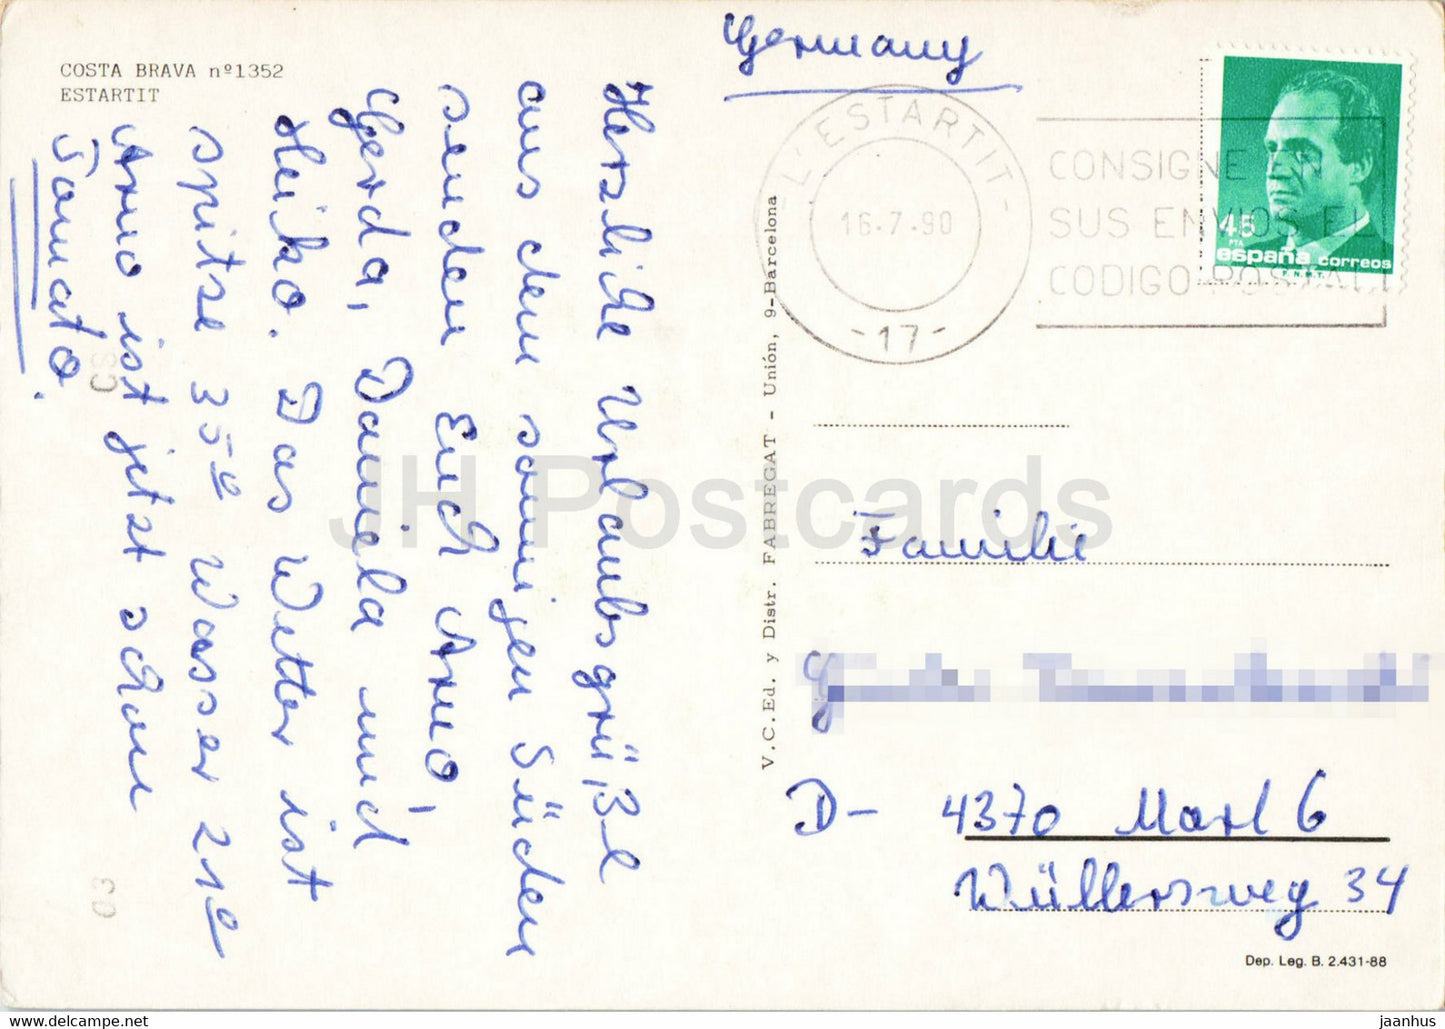 COSTA BRAVA nº1352
ESTARTIT
Herzliche Urlaubsgrüße
aus dem sonnigen Süden
senden Euch Arno,
Gerda, Daniela und
Heiko. Das Wetter ist
spitse 35º Wasser 21º
Arno ist jetzt schon
Tomato.
V.C.Ed. y Distr. FABREGAT - Unión, 9-Barcelona
Germany
L'ESTARTIT
16-7-90
-17-
CONSIGNE EN
SUS ENVIOS EL
CODIGO POSTAL
45
PTA
españa correos
F.N.M.T.
Familie
D- 4370 Marl 6
Wüllersweg 34
Dep. Leg. B. 2.431-88
CS
03
JH Postcards
www.delcampe.net
jaanhus